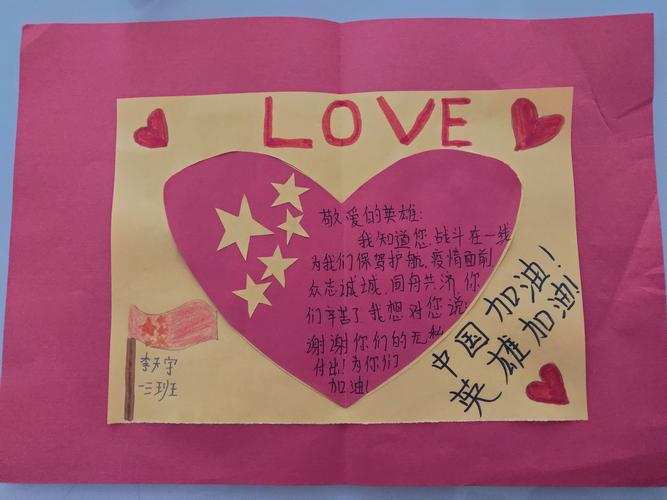 LOVE
敬爱的英雄:
我知道您战斗在一线
为我们保驾护航,疫情面前
众志诚城,同舟共济,你
们辛苦了我想对您说:
谢谢你们的无私
付出!为你们
加油!
中国加油!
英雄加油!
李天宇
一三班